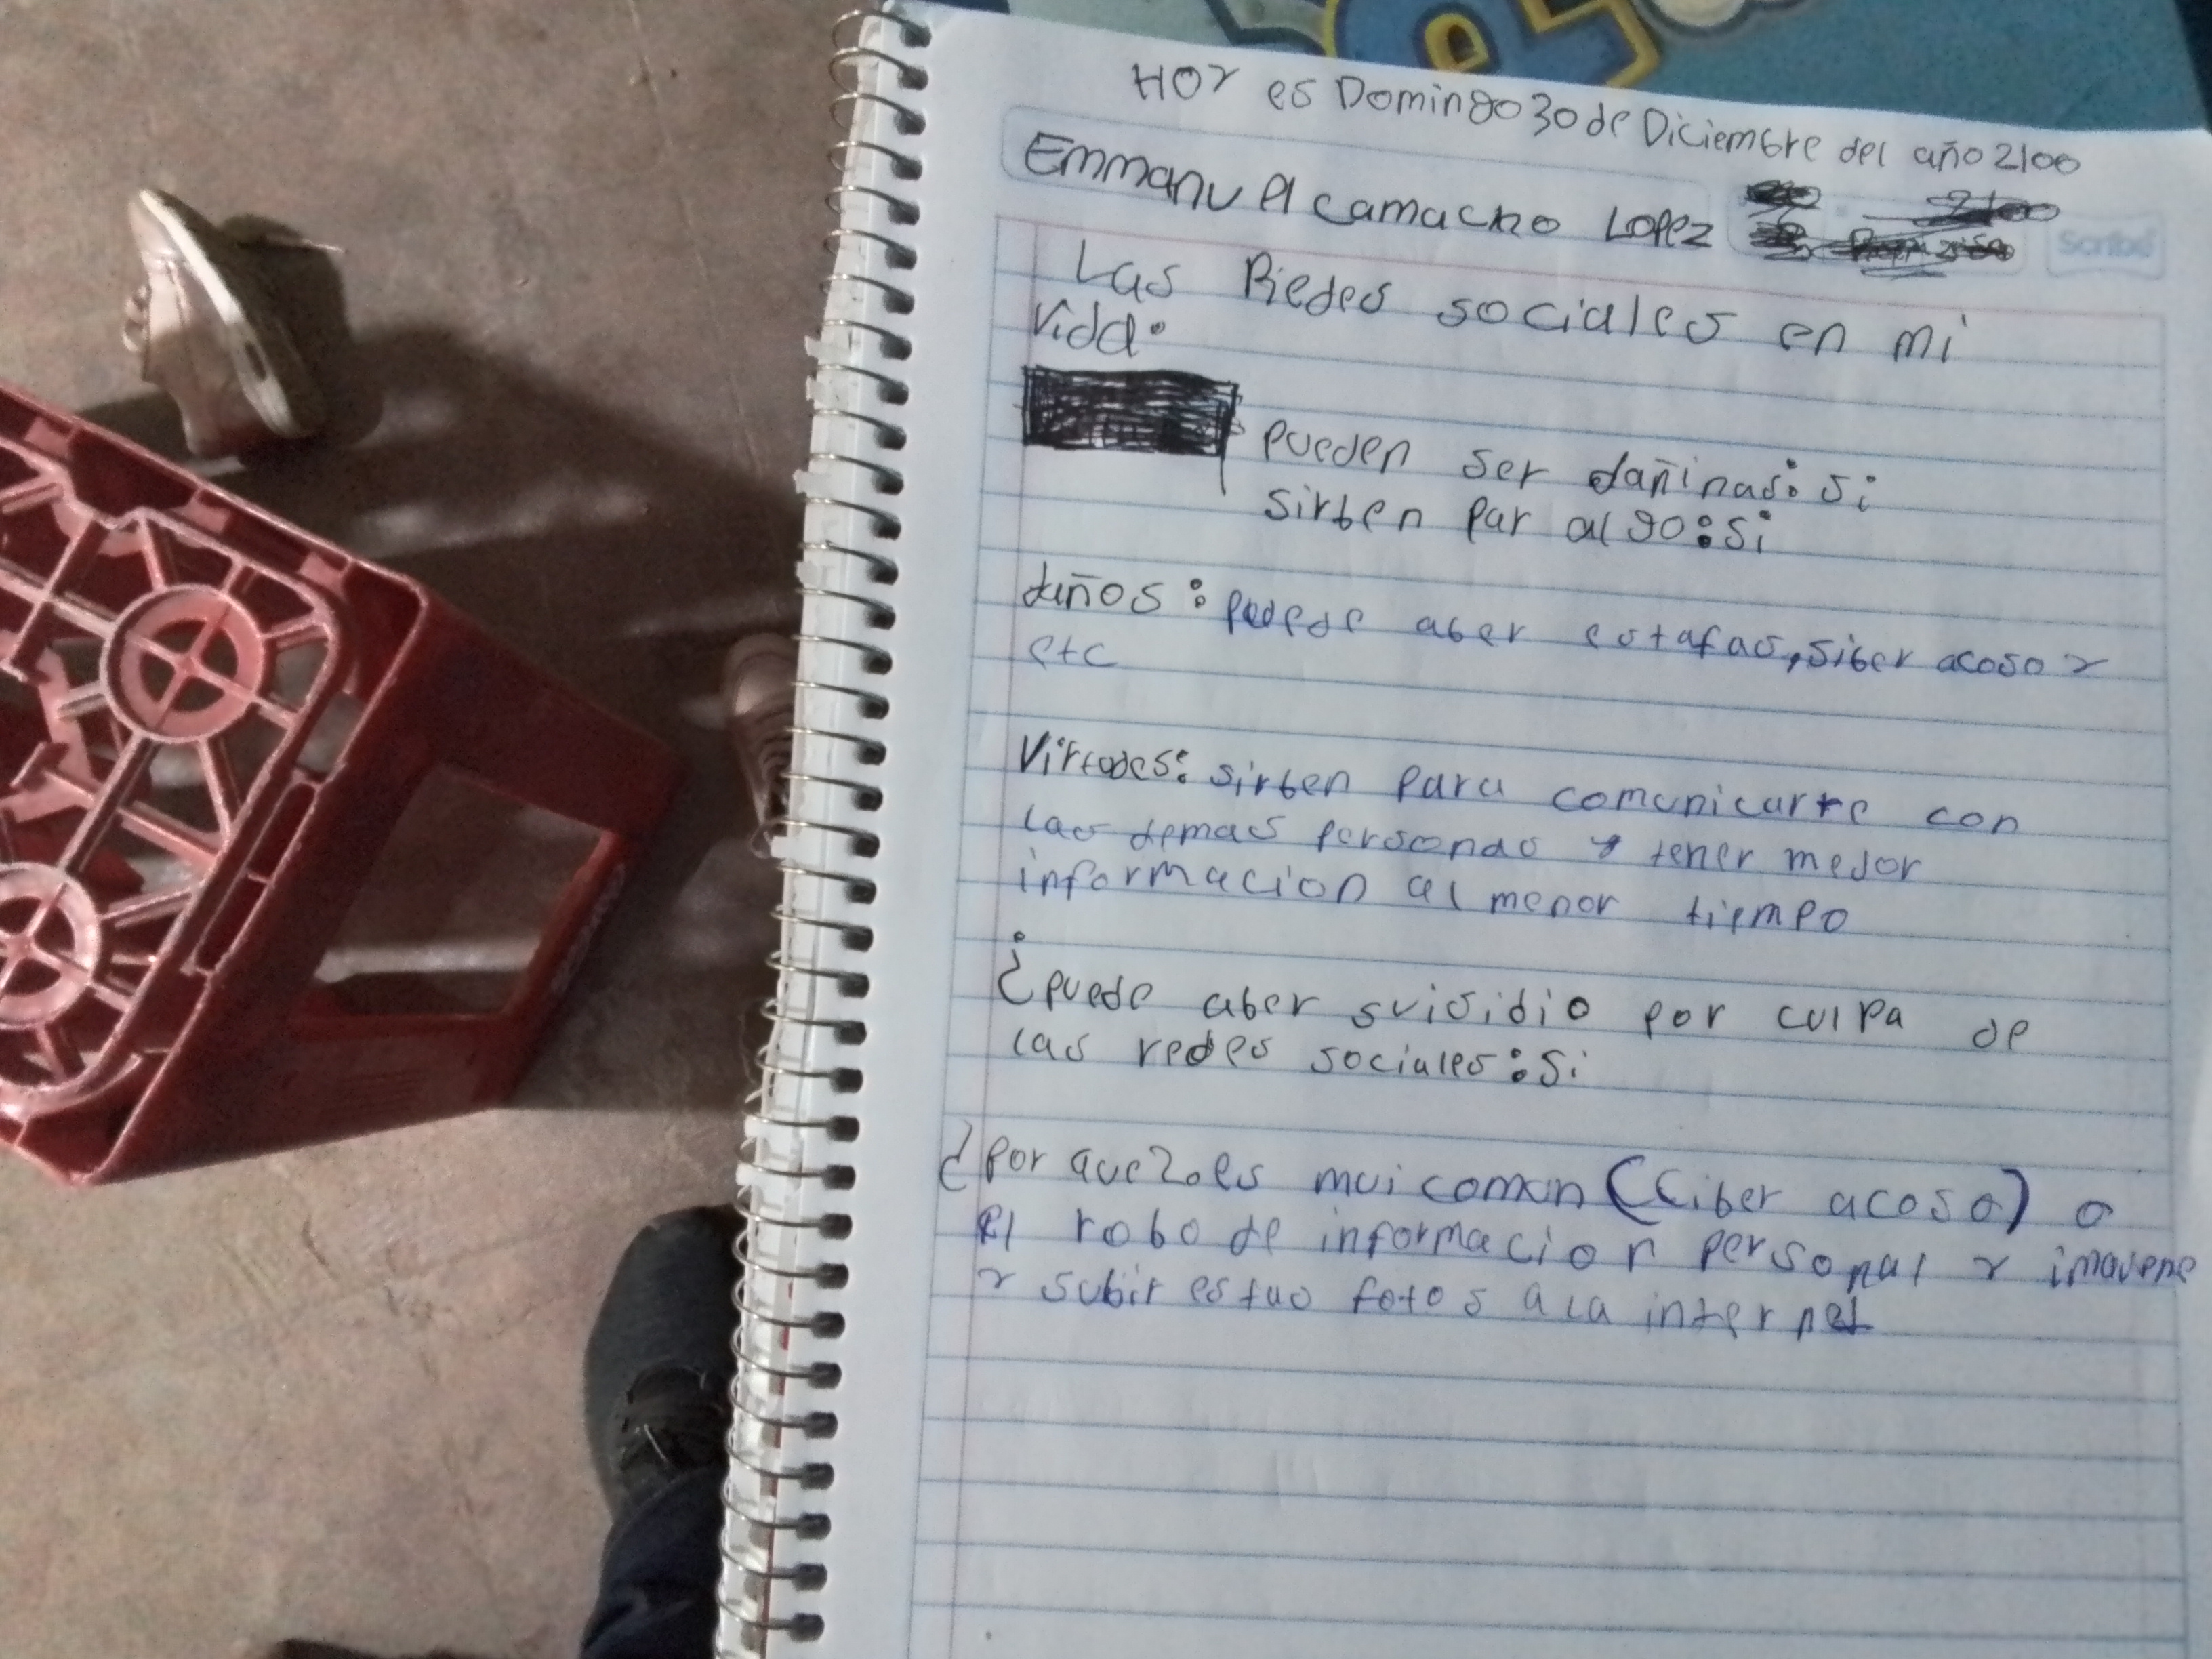 HOY es Domingo 30 de Diciembre del año 2100
Emmanuel camacho Lopez
Scribe
Las Redes sociales en mi
vida:
pueden ser dañinas: si
sirben par algo: si
daños: puede aber estafas, siber acoso y
etc
Virtudes: sirben para comunicarte con
las demas personas y tener mejor
informacion al menor tiempo
¿puede aber suisidio por culpa de
las redes sociales: si
¿Por que?. es mui comun (Ciber acoso) o
El robo de informacion personal y imagene
y subir estas fotos a la internet